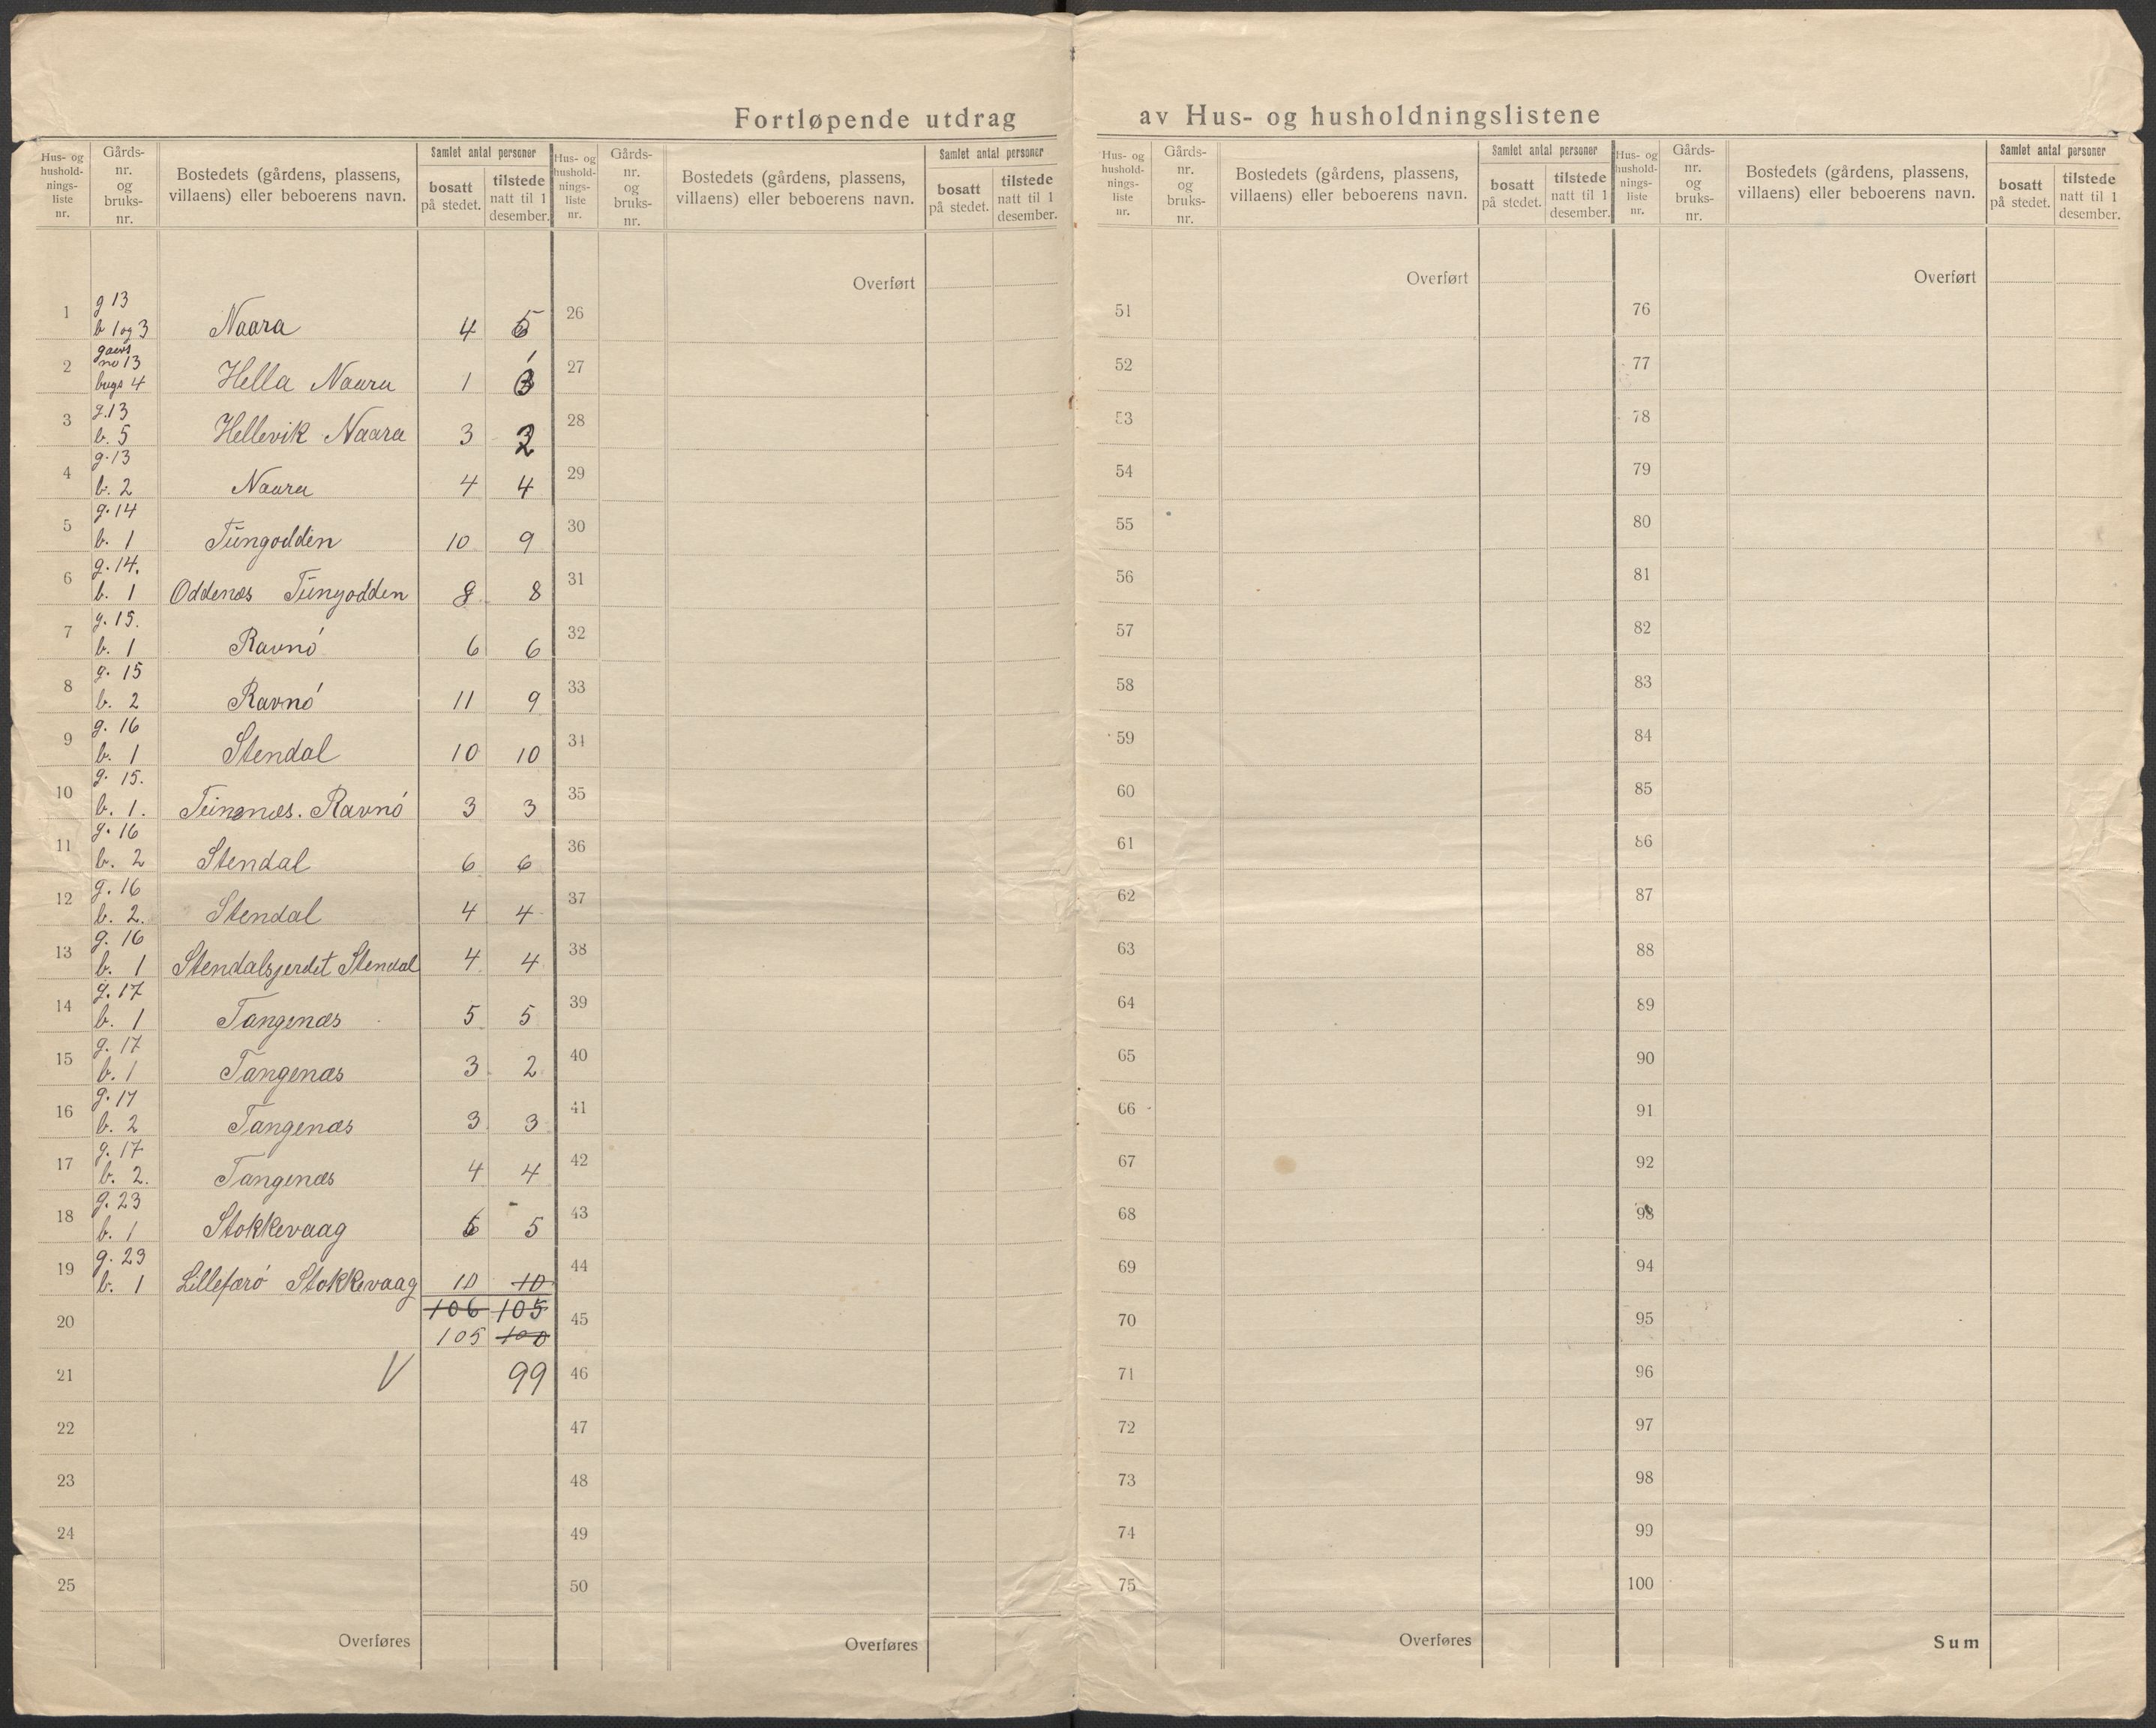 Fortløpende utdrag av Hus- og husholdningslistene
Hus- og hushold-nings-liste nr. Gårds-nr. og bruks-nr. Bostedets (gårdens, plassens, villaens) eller beboerens navn. Samlet antal personer bosatt på stedet. tilstede natt til 1 desember.
1 g 13 b 1 og 3 Naara 4 5
2 no 13 4 Hella Naara 1
3 g. 13 b. 5 Hellevik Naara 3 2
4 g. 13 b. 2 Naara 4 4
5 g. 14 b. 1 Tüngodden 10 9
6 g. 14. b. 1 Oddenæs Tüngodden 8 8
7 g. 15. b. 1 Ravnó 6 6
8 g. 15 b. 2 Ravnó 11 9
9 g. 16 b. 1 Stendal 10 10
10 g. 15. b. 1. Ravnó 3 3
11 g. 16 b. 2 Stendal 6 6
12 g. 16 b. 2. Stendal 4 4
13 g. 16 b. 1 Stendalsjerdet Stendal 4 4
14 g. 17 b. 1 Tangenæs 5 5
15 g. 17 b. 1 Tangenæs 3 2
16 g. 17 b. 2 Tangenæs 3 3
17 g. 17 b. 2. Tangenæs 4 4
18 g. 23 b. 1 Stokkevaag 6 5
19 g. 23 b. 1 Lillefæró Stokkevaag 10 10
20 106 105
105 100
21 99
22
23
24
25
Overføres
Hus- og hushold-nings-liste nr. Gårds-nr. og bruks-nr. Bostedets (gårdens, plassens, villaens) eller beboerens navn. Samlet antal personer bosatt på stedet. tilstede natt til 1 desember.
Overført
26
27
28
29
30
31
32
33
34
35
36
37
38
39
40
41
42
43
44
45
46
47
48
49
50
Overføres
Hus- og hushold-nings-liste nr. Gårds-nr. og bruks-nr. Bostedets (gårdens, plassens, villaens) eller beboerens navn. Samlet antal personer bosatt på stedet. tilstede natt til 1 desember.
Overført
51
52
53
54
55
56
57
58
59
60
61
62
63
64
65
66
67
68
69
70
71
72
73
74
75
Overføres
Hus- og hushold-nings-liste nr. Gårds-nr. og bruks-nr. Bostedets (gårdens, plassens, villaens) eller beboerens navn. Samlet antal personer bosatt på stedet. tilstede natt til 1 desember.
Overført
76
77
78
79
80
81
82
83
84
85
86
87
88
89
90
91
92
93
94
95
96
97
98
99
100
Sum